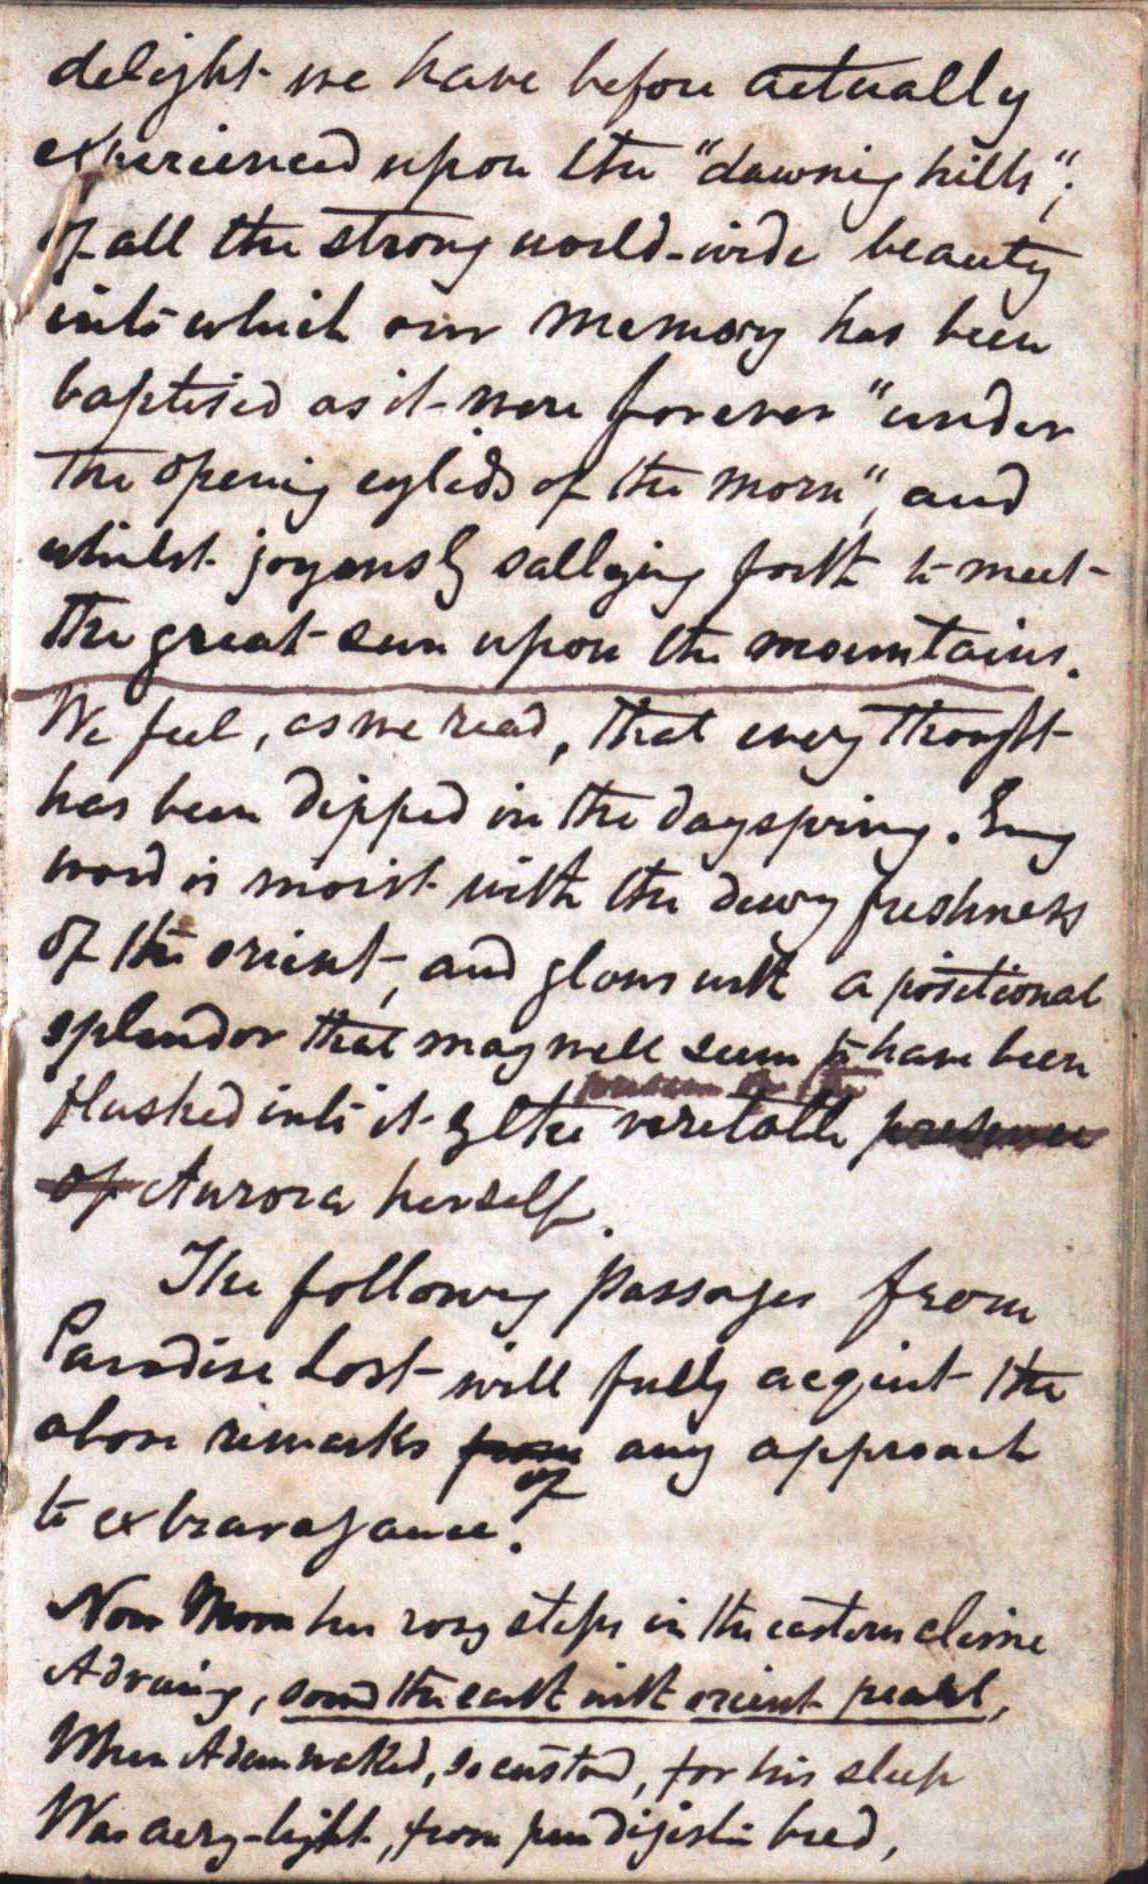 delight we have before actually
experienced upon the "dawning hills";
of all the strong world-wide beauty
into which our memory has been
baptised as it were forever "under
the opening eylids of the morn", and
whilst joyously sallying forth to meet
the great sun upon the mountains.
We feel, as we read, that every thought
has been dipped in the dayspring. Every
word is moist with the dewy freshness
of the orient, and glows with a positional
splendor that may well seem to have been
flushed into it by the veritable presence
of Aurora herself.
The following passages from
Paradise Lost will fully acquit the
above remarks from any approach
of
to extravagance.
Now Morn her rosy steps in the eastern clime
Advancing, sowed the earth with orient pearl,
When Adam waked, so customd, for his sleep
Was aery-light, from pure digestion bred,